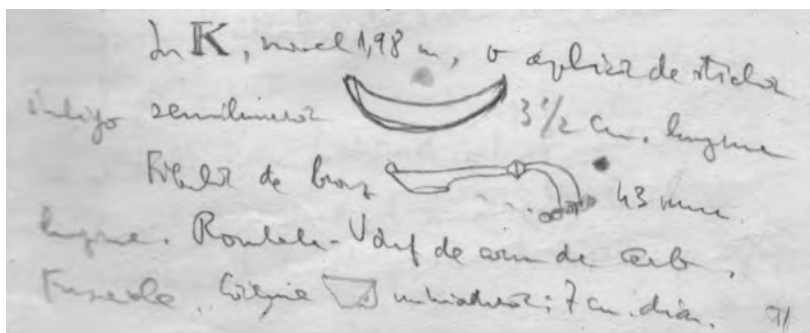 In K, nivel 1,98 m, o aplică de sticlă
indigo semilunară 3 1/2 cm. lungime
Fibulă de bronz 43 mm.
lungime. Rondele - Vârf de corn de cerb.
Fusaiole, miniaturală; 7 cm. diam.